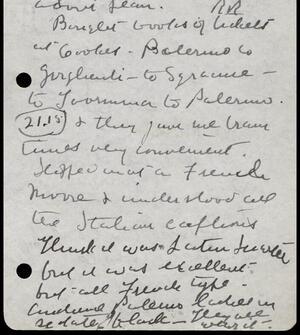 about Jean. RR
Bought books of tickets
at Cooks - Palermo to
Girghenti - to Syracuse -
to Taormina to Palermo.
21.15 & they gave me train
times very convenient.
in a French
movie & understood all
the Italian captions
Think it was Latin Quarter
but it was excellent
but all French type.
Palermo ladies in
sedate black - They are